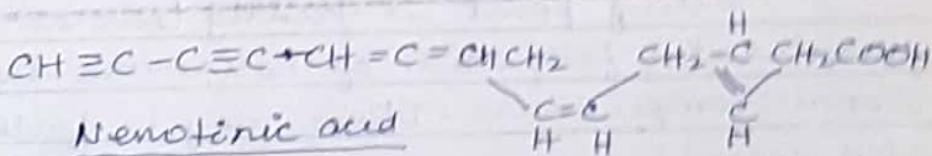 H
CH≡C-C≡C-CH=C=CHCH₂ CH₂-C CH₂COOH
C=C C
Nemotinic acid H H H